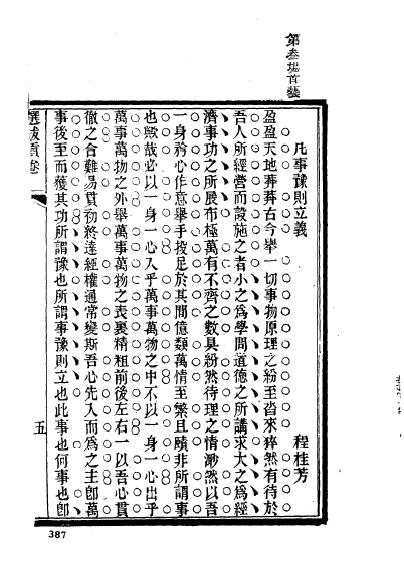 第叁塲首藝
凡事豫則立義
程桂芳
盈盈天地莽莽古今舉一切事物原理之紛至沓來猝然有待於
吾人所經營而設施之者小之爲學問道德之所講求大之爲經
濟事功之所展布極萬有不齊之數具紛然待理之情渺然以吾
一身矜心作意舉手投足於其間億類萬情至繁且賾非所謂事
也歟哉必以一身一心入乎萬事萬物之中不以一身一心出乎
萬事萬物之外舉萬事萬物之表裏精粗前後左右一以吾心貫
徹之合難易貫初終達經權通常變斯吾心先入而爲之主卽萬
事後至而獲其功所謂豫也所謂事豫則立也此事也何事也卽
選拔貢卷
五
387